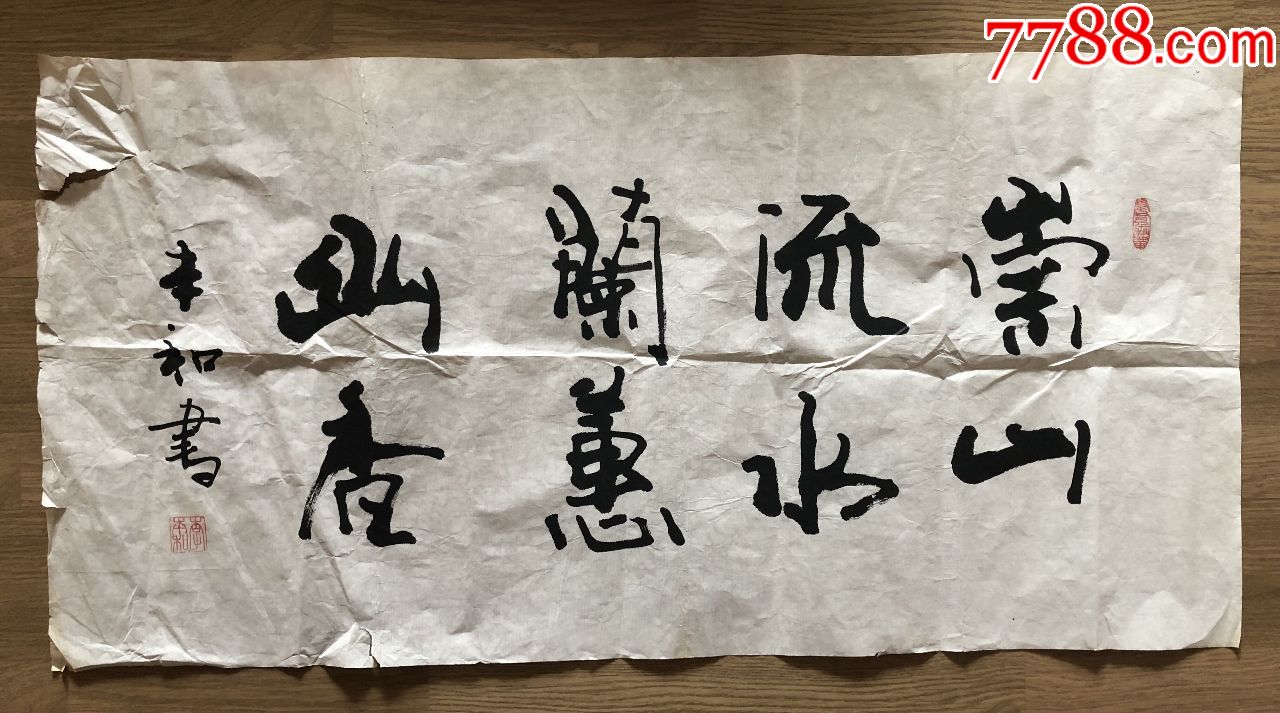 7788.com
崇山
流水
蘭蕙
幽香
東和書